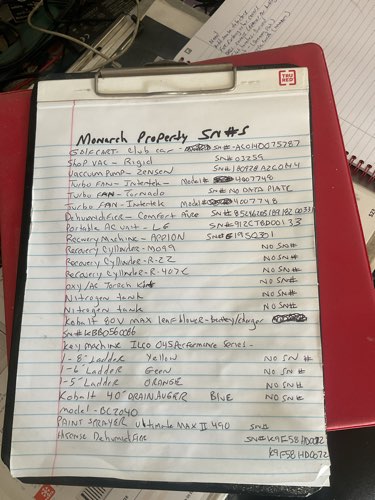 TRU RED
Monarch Property SN#S
GOLFCART- Club car - SN#-AC0H0075787
Shop VAC - Rigid SN# 03259
VACCUUM PUMP - ZENSEN SN# 180928A2COM4
Turbo FAN - Intertek Model# 4007748
Turbo FAN - Tornado SN# NO ON ID PLATE
Turbo FAN - Intertek Model 4007748
Dehumidifier - Comfort Aire SN#
Portable AC unit - LG SN# 912CTBD00133
Recovery Machine - APPION SN# 19SQ301
Recovery Cylinder - M099 NO SN#
Recovery Cylinder - R-22 NO SN#
Recovery Cylinder - R-407C NO SN#
Oxy/Ac Torch Kit NO SN#
Nitrogen tank NO SN#
Nitrogen tank NO SN#
Kobalt 80V MAX leaf blower - battery/charger
SN# KBB056006
Key machine ILCO 045 Performance Series -
1- 8' Ladder Yellow NO SN #
1- 6' Ladder Geen NO SN #
1- 5' Ladder ORANGE NO SN #
Kobalt 40' DRAIN AUGER Blue NO SN#
model - BC2040
PAINT SPRAYER Ultimate MAX II 490 SN#
Hisense Dehumidifire SN# K9F58HD0072
K9F58HD0072